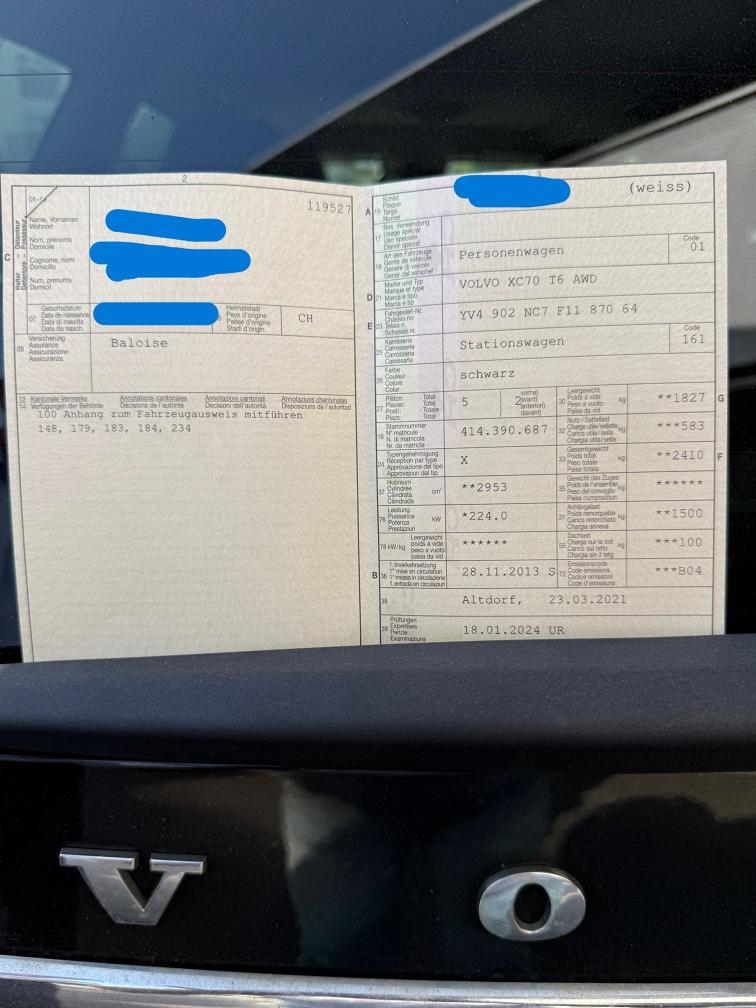 2
01-06
119527
C
Halter - Détenteur
Detentore - Possessur
Name, Vornamen
Wohnort
Nom, prénoms
Domicile
Cognome, nomi
Domicilio
Num, prenums
Domicil
07
Geburtsdatum
Date de naissance
Data di nascita
Data da nasch.
Heimatstaat
Pays d'origine
Paese d'origine
Stadi d'origin
CH
09
Versicherung
Assurance
Assicurazione
Assicuranza
Baloise
13
14
Kantonale Vermerke
Verfügungen der Behörde
Annotations cantonales
Décisions de l'autorité
Annotazioni cantonali
Decisioni dell'autorità
Annotaziuns chantunalas
Disposiziuns da l'autoritad
100 Anhang zum Fahrzeugausweis mitführen
148, 179, 183, 184, 234
3
A 15
Schild
Plaque
Targa
Numer
(weiss)
17
Bes. Verwendung
Usage spécial
Uso speciale
Diever spezial
19
Art des Fahrzeugs
Genre de véhicule
Genere di veicolo
Gener dal vehichel
Personenwagen
Code
01
D 21
Marke und Typ
Marque et type
Marca e tipo
Marca e tip
VOLVO XC70 T6 AWD
E 23
Fahrgestell-Nr.
Châssis no
Telaio n.
Schassis nr.
YV4 902 NC7 F11 870 64
25
Karosserie
Carrosserie
Carrozzeria
Carossaria
Stationswagen
Code
161
26
Farbe
Couleur
Colore
Colur
schwarz
27
Plätze: Total
Places: Total
Posti: Totale
Plazs: Total
5
2
vorne)
avant)
anteriori)
davant)
30
Leergewicht
Poids à vide
Peso a vuoto
Paisa da vid
kg
**1827
G
18
Stammnummer
N° matricule
N. di matricola
Nr. da matricla
414.390.687
32
Nutz-/Sattellast
Charge utile/sellette
Carico utile/sella
Chargia utila/sella
kg
**583
24
Typengenehmigung
Réception par type
Approvazione del tipo
Approvaziun dal tip
X
33
Gesamtgewicht
Poids total
Peso totale
Paisa totala
kg
**2410
F
37
Hubraum
Cylindrée
Cilindrata
Cilindrada
cm³
**2953
35
Gewicht des Zuges
Poids de l'ensemble
Peso del convoglio
Paisa cumposiziun
kg
******
76
Leistung
Puissance
Potenza
Prestaziun
kW
*224.0
31
Anhängelast
Poids remorquable
Carico rimorchiato
Chargia annexa
kg
**1500
78 kW/kg
Leergewicht
poids à vide
peso a vuoto
paisa da vid
******
55
Dachlast
Charge sur le toit
Carico sul tetto
Chargia sin il tetg
kg
***100
B 36
1. Inverkehrsetzung
1re mise en circulation
1a messa in circolazione
1. entrada en circulaziun
28.11.2013 S
72
Emissionscode
Code émissions
Codice emissioni
Code d'emissiuns
***B04
38
Altdorf, 23.03.2021
39
Prüfungen
Expertises
Perizie
Examinaziuns
18.01.2024 UR
V O